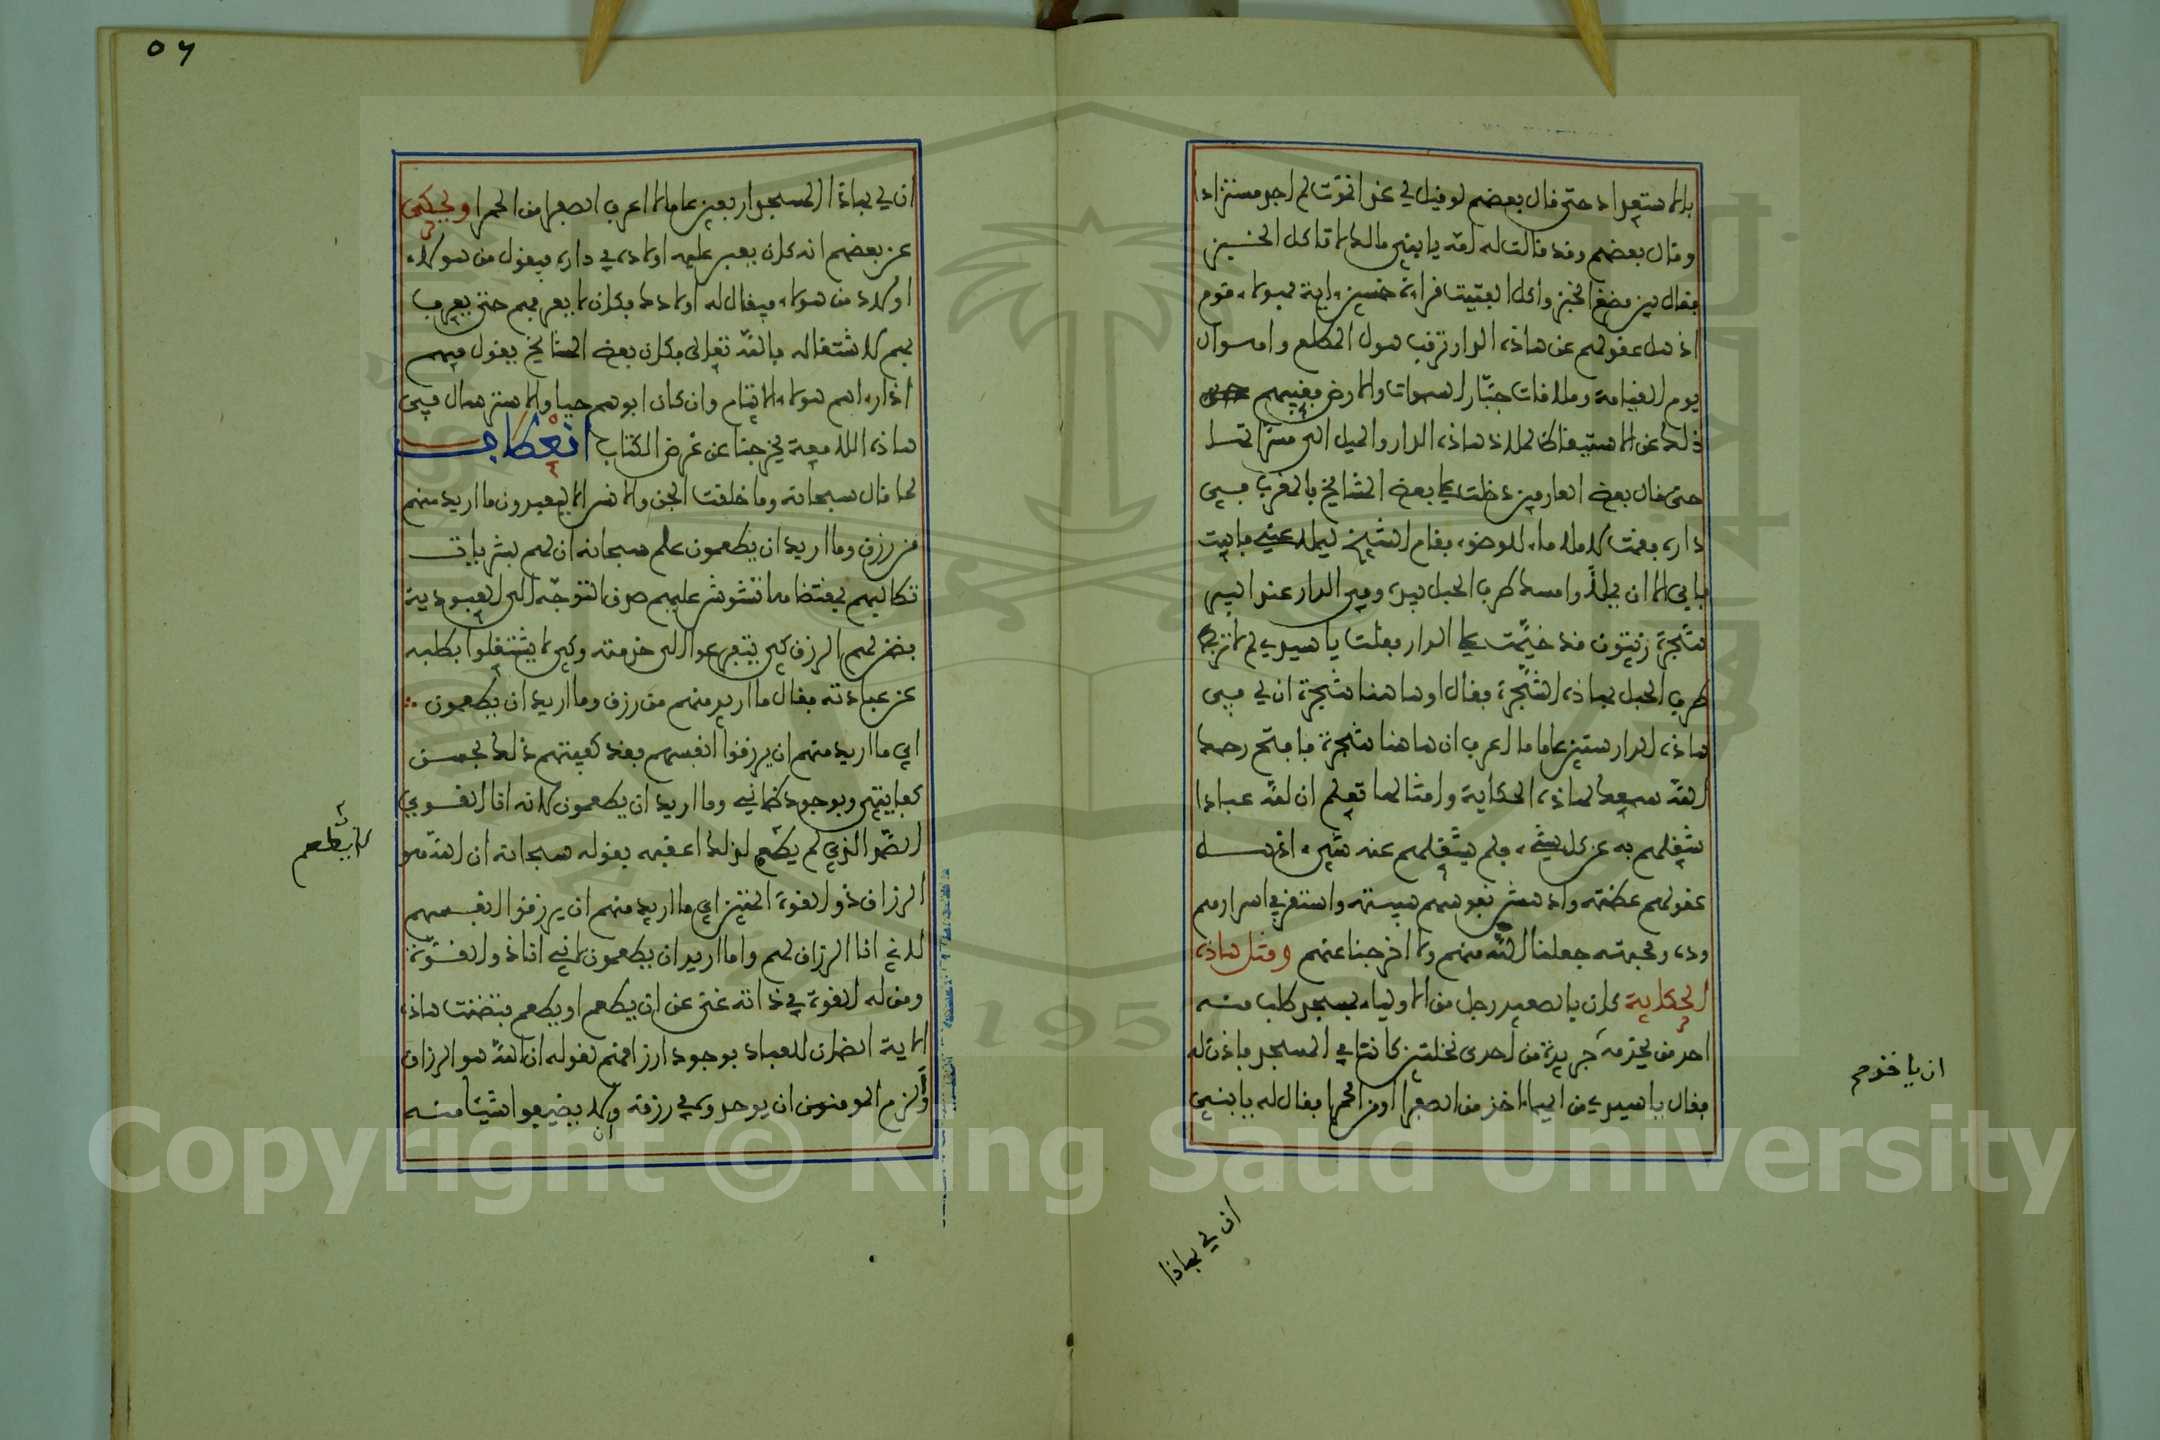 بالاستعداد حتى قال بعضهم لو قيل لي غدا تموت لم اجد مستزاد
وقال بعضهم وقد قالت له امه يا بني مالك لا تاكل الخبز
فقال بين مضغ الخبز واكل الفتيت قراءة خمسين اية فهولاء قوم
اذهل عقولهم عن هاذه الدار ترقب هول المطلع واهوال
يوم القيامة وملاقات جبار السموات والارض فغيبهم
ذلك عن الاستيقاظ لملاذ هاذه الدار والميل الى مسراتها
حتى قال بعض العارفين دخلت على بعض المشايخ بالمغرب في
داره فقمت لاملا ماء للوضوء فقام الشيخ ليملا عني فابيت
فابى الا ان يملا وامسك طرف الحبل بيده وفي الدار عند البير
شجرة زيتون قد خيمت على الدار فقلت يا سيدي لم لا تربط
طرف الحبل بهاذه الشجرة فقال اوهاهنا شجرة ان لي في
هاذه الدار ستين عاما لا اعرف ان هاهنا شجرة فافتح رحمك
الله سمعك لهاذه الحكاية وامثالها تعلم ان لله عبادا
شغلهم به عن كل شيء ولم يشغلهم عنه شيء اذهل
عقولهم عظمته وادهش نفوسهم هيبته واستقر في اسرارهم
وده ومحبته جعلنا الله منهم ولا اخرجنا عنهم ومثل هاذه
الحكاية كان بالصعيد رجل من الاولياء بمسجد طلب منه
احد من يخدمه جريدة من احدى نخلتين كانتا في المسجد فاذن له
فقال يا سيدي من ايهما اخذ من الصفرا او من الحمرا فقال له يا بني
ان يا خذهم
ان لي بهاذا
٥٦
ان لي بهاذا المسجد اربعين عاما لا اعرف الصفرا من الحمرا ويحكى
عن بعضهم انه كان يعبر عليه اولاده في داره فيقول من هولاء
اولاد من هولاء فيقال له اولادك فكان لا يعرفهم حتى يعرف
بهم لاشتغاله بالله تعالى وكان بعض المشايخ يقول فيهم
اذا راهم هولاء الايتام وان كان ابوهم حيا والاسترسال في
هاذه اللمعة يخرجنا عن غرض الكتاب انعطاف
لما قال سبحانه وما خلقت الجن والانس الا ليعبدون ما اريد منهم
من رزق وما اريد ان يطعمون علم سبحانه ان لهم بشريات
تطالبهم بمقتضاها تشوش عليهم صدق التوجه الى العبودية
فضمن لهم الرزق كي يتفرغوا الى خدمته وكي لا يشتغلوا بطلبه
عن عبادته فقال ما اريد منهم من رزق وما اريد ان يطعمون
اي ما اريد منهم ان يرزقوا انفسهم فقد كفيتهم ذلك بحسن
كفايتي وبوجود ضماني وما اريد ان يطعمون لانه انا القوي
الصمد الذي لم يطعم لذلك اعقبه بقوله سبحانه ان الله هو
الرزاق ذو القوة المتين اي ما اريد منهم ان يرزقوا انفسهم
لاني انا الرزاق لهم واما اريد ان يطعمون لاني انا ذو القوة
ومن له القوة في ذاته غني عن ان يطعم او يطعم فتضمنت هاذه
الاية الضمان للعباد بوجود ارزاقهم لقوله ان الله هو الرزاق
والزم المومنين ان يوحدوه في رزقه وان لا يضيعوا شيئا منه
لا يطعم